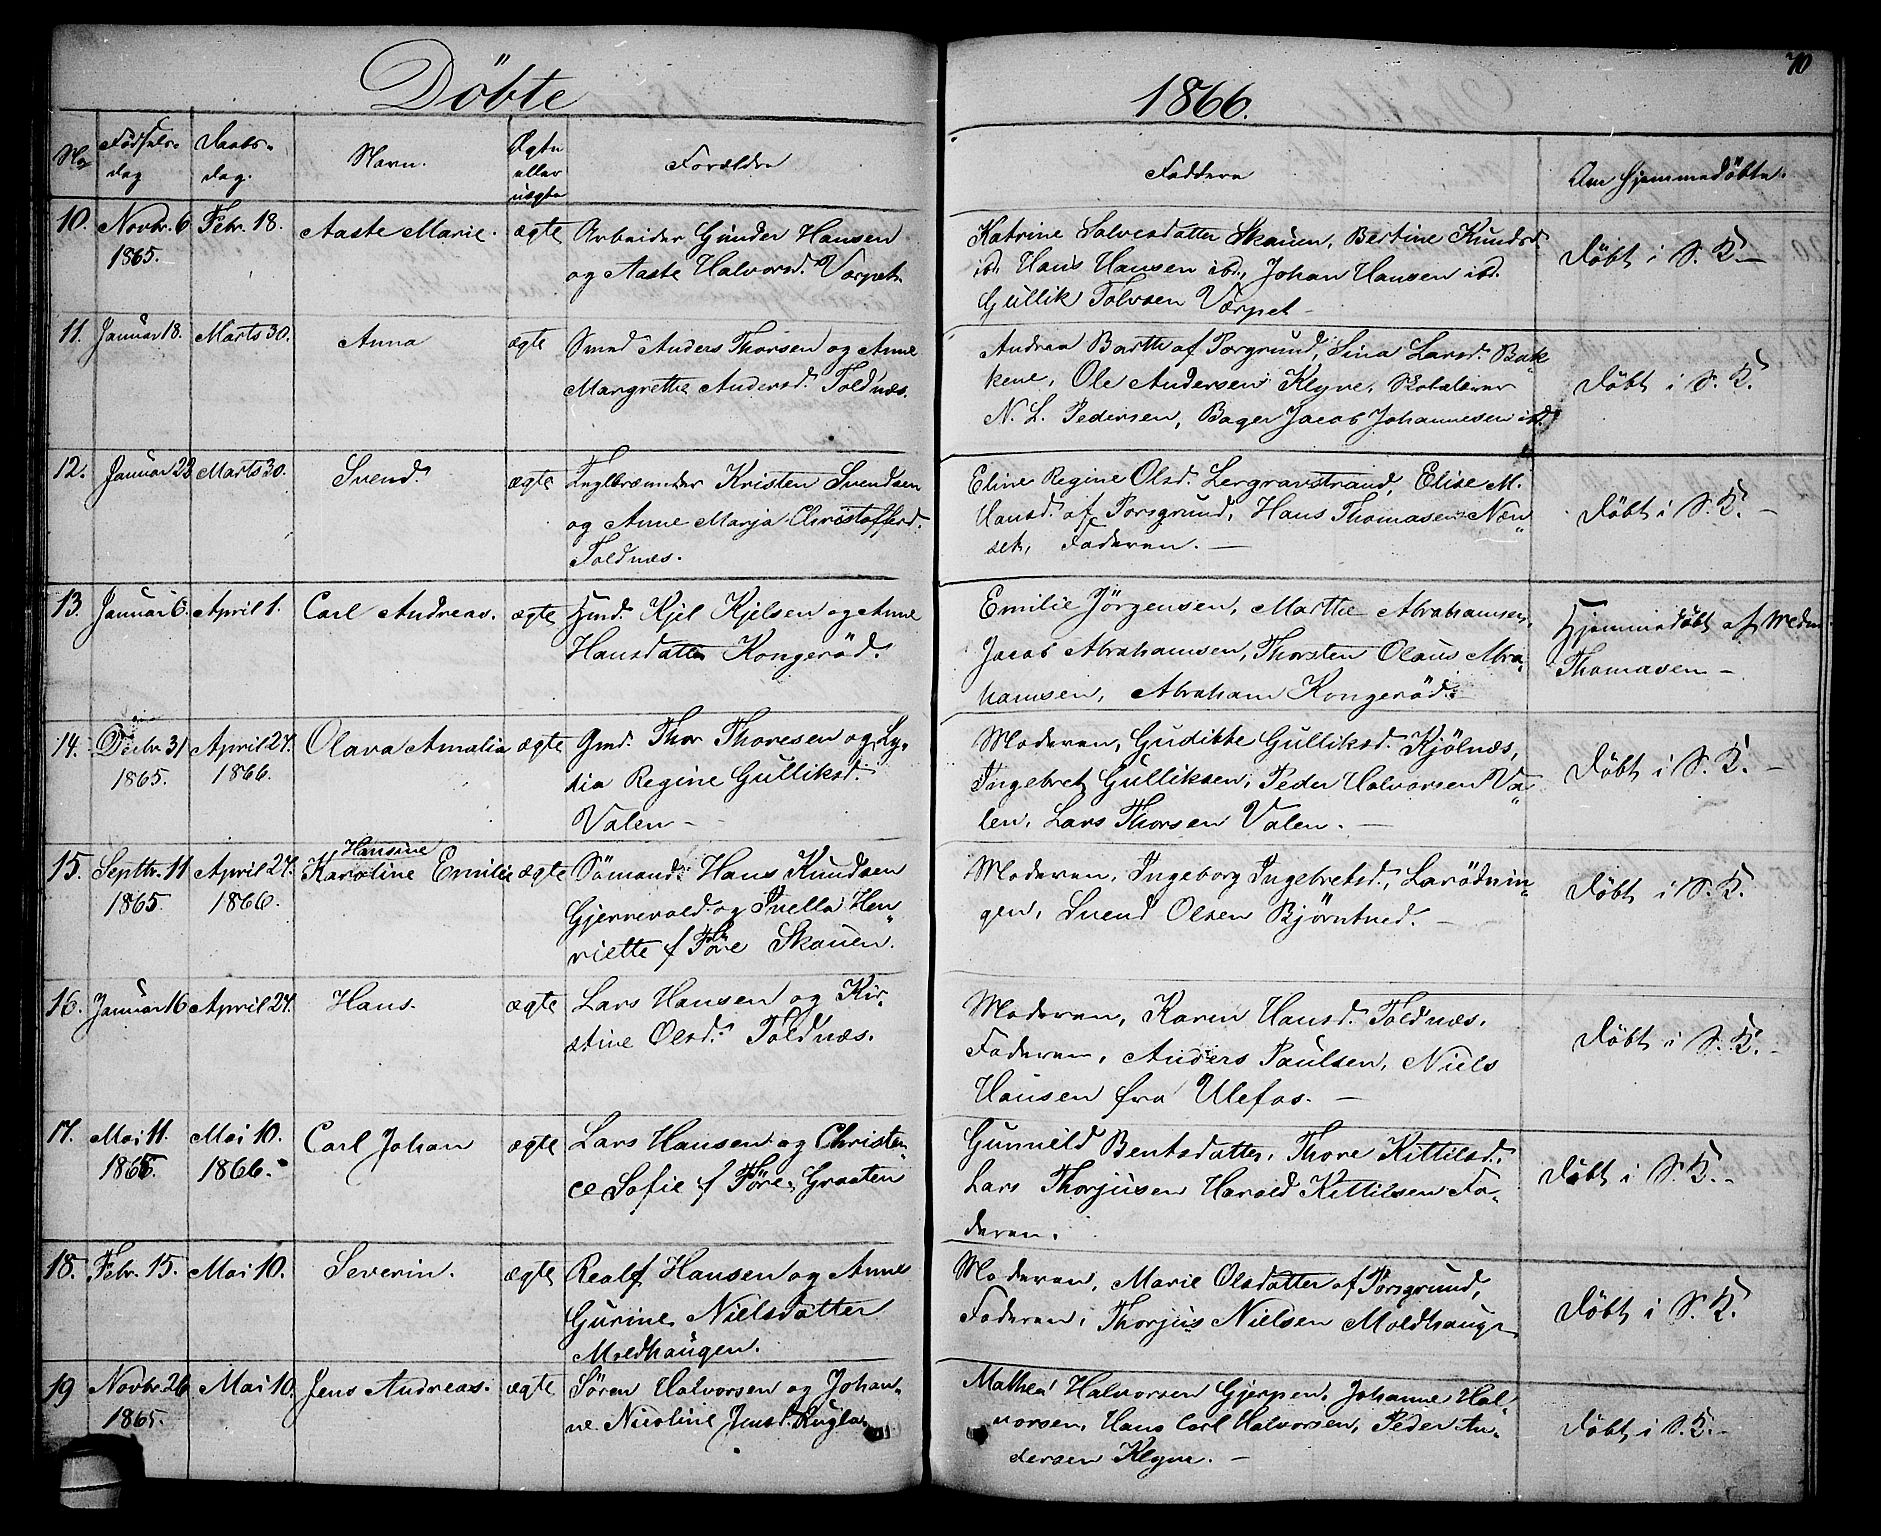 Döbte
1866.
70
No Fødsels-dag Daabs-dag. Navn. Ægte eller uægte Forældre Faddere Om hjemmedöbte.
10. Novbr. 6 1865. Febr. 18. Aaste Marie. ægte Arbeider Gunder Hansen
og Aaste Halvorsd. Værpet.
Katrine Salvesdatter Skauen, Bertine Knudsd
ibd. Hans Hansen ibd., Johan Hansen ibd.
Gullik Tolvsen Værpet -
Döbt i S. K. -
11. Januar 18. Marts 30. Anna ægte Smed Anders Thorsen og Anne
Margrethe Andersd. Toldnæs.
Andrea Barth af Porgrund, Sina Larsd. Bak-
kene, Ole Andersen Klyve,
N. L. Pedersen, Bager Jacob Johannesen ibd.
Döbt i S. K.
12. Januar 23 Marts 30. Svend. ægte Teglbrænder Kristen Svendsen
og Anne Marja Christoffersd.
Toldnæs.
Eline Regine Olsd. Lergravstrand, Elise M.
Hansd. af Porsgrund, Hans Thomasen Næn-
set, Faderen. -
Döbt i S. K. -
13. Januar 6. April 1. Carl Andreas. ægte Hmd. Kjel Kjelsen og Anne
Hansdatter Kongeröd.
Emilie Jörgensen, Marthe Abrahamsen,
Jacob Abrahamsen, Thorsten Olaus Abra-
hamsen, Abraham Kongeröd.
Hjemmedöbt af
Thomasen -
14. Decbr. 31 1865. April 27. 1866. Olava Amalia ægte Gmd. Thor Thoresen og Ly-
dia Regine Gulliksd.
Valen -
Moderen, Guditte Gulliksd. Kjölnæs,
Ingebret Gulliksen, Peder Halvorsen Va-
len, Lars Thorsen Valen. -
Döbt i S. K. -
15. Septbr. 11 1865 April 27. 1866. Hansine
Karoline Emilie ægte Sömand Hans Knudsen
Gjerrevald og Pnella Hen-
riette f. Töre Skauen.
Moderen, Ingeborg Ingebretsd., Larödnin-
gen, Svend Olsen Björntved. -
Döbt i S. K.
16. Januar 16 April 27. Hans. ægte Lars Hansen og Kir-
stine Olsd. Toldnæs.
Moderen, Karen Hansd. Toldnæs.
Faderen, Anders Paulsen, Niels
Hansen fra Ulefos. -
Döbt i S. K. -
17. Mai 11. 1865. Mai 10. 1866. Carl Johan ægte Lars Hansen og Christen-
ce Sofie f. Töre, Graaten
Gunnild Bentsdatter, Thore Kittilsd.
Lars Thorjusen Harald Kittilsen Fa-
deren.
Döbt i S. K. -
18. Febr. 15. Mai 10. Severin. ægte Realf Hansen og Anne
Gurine Nielsdatter
Moldhaugen.
Moderen, Marie Olsdatter af Porsgrund,
Faderen, Thorjus Nielsen Moldhaugen
Döbt i S. K.
19 Novbr. 26 1865. Mai 10. Jens Andreas. ægte Sören Halvorsen og Johan-
ne Nicoline Jensd.
Mathea Halvorsen Gjerpen, Johanne Hal-
vorsen, Hans Carl Halvorsen, Peder An-
dersen Klyve. -
Döbt i S. K. -